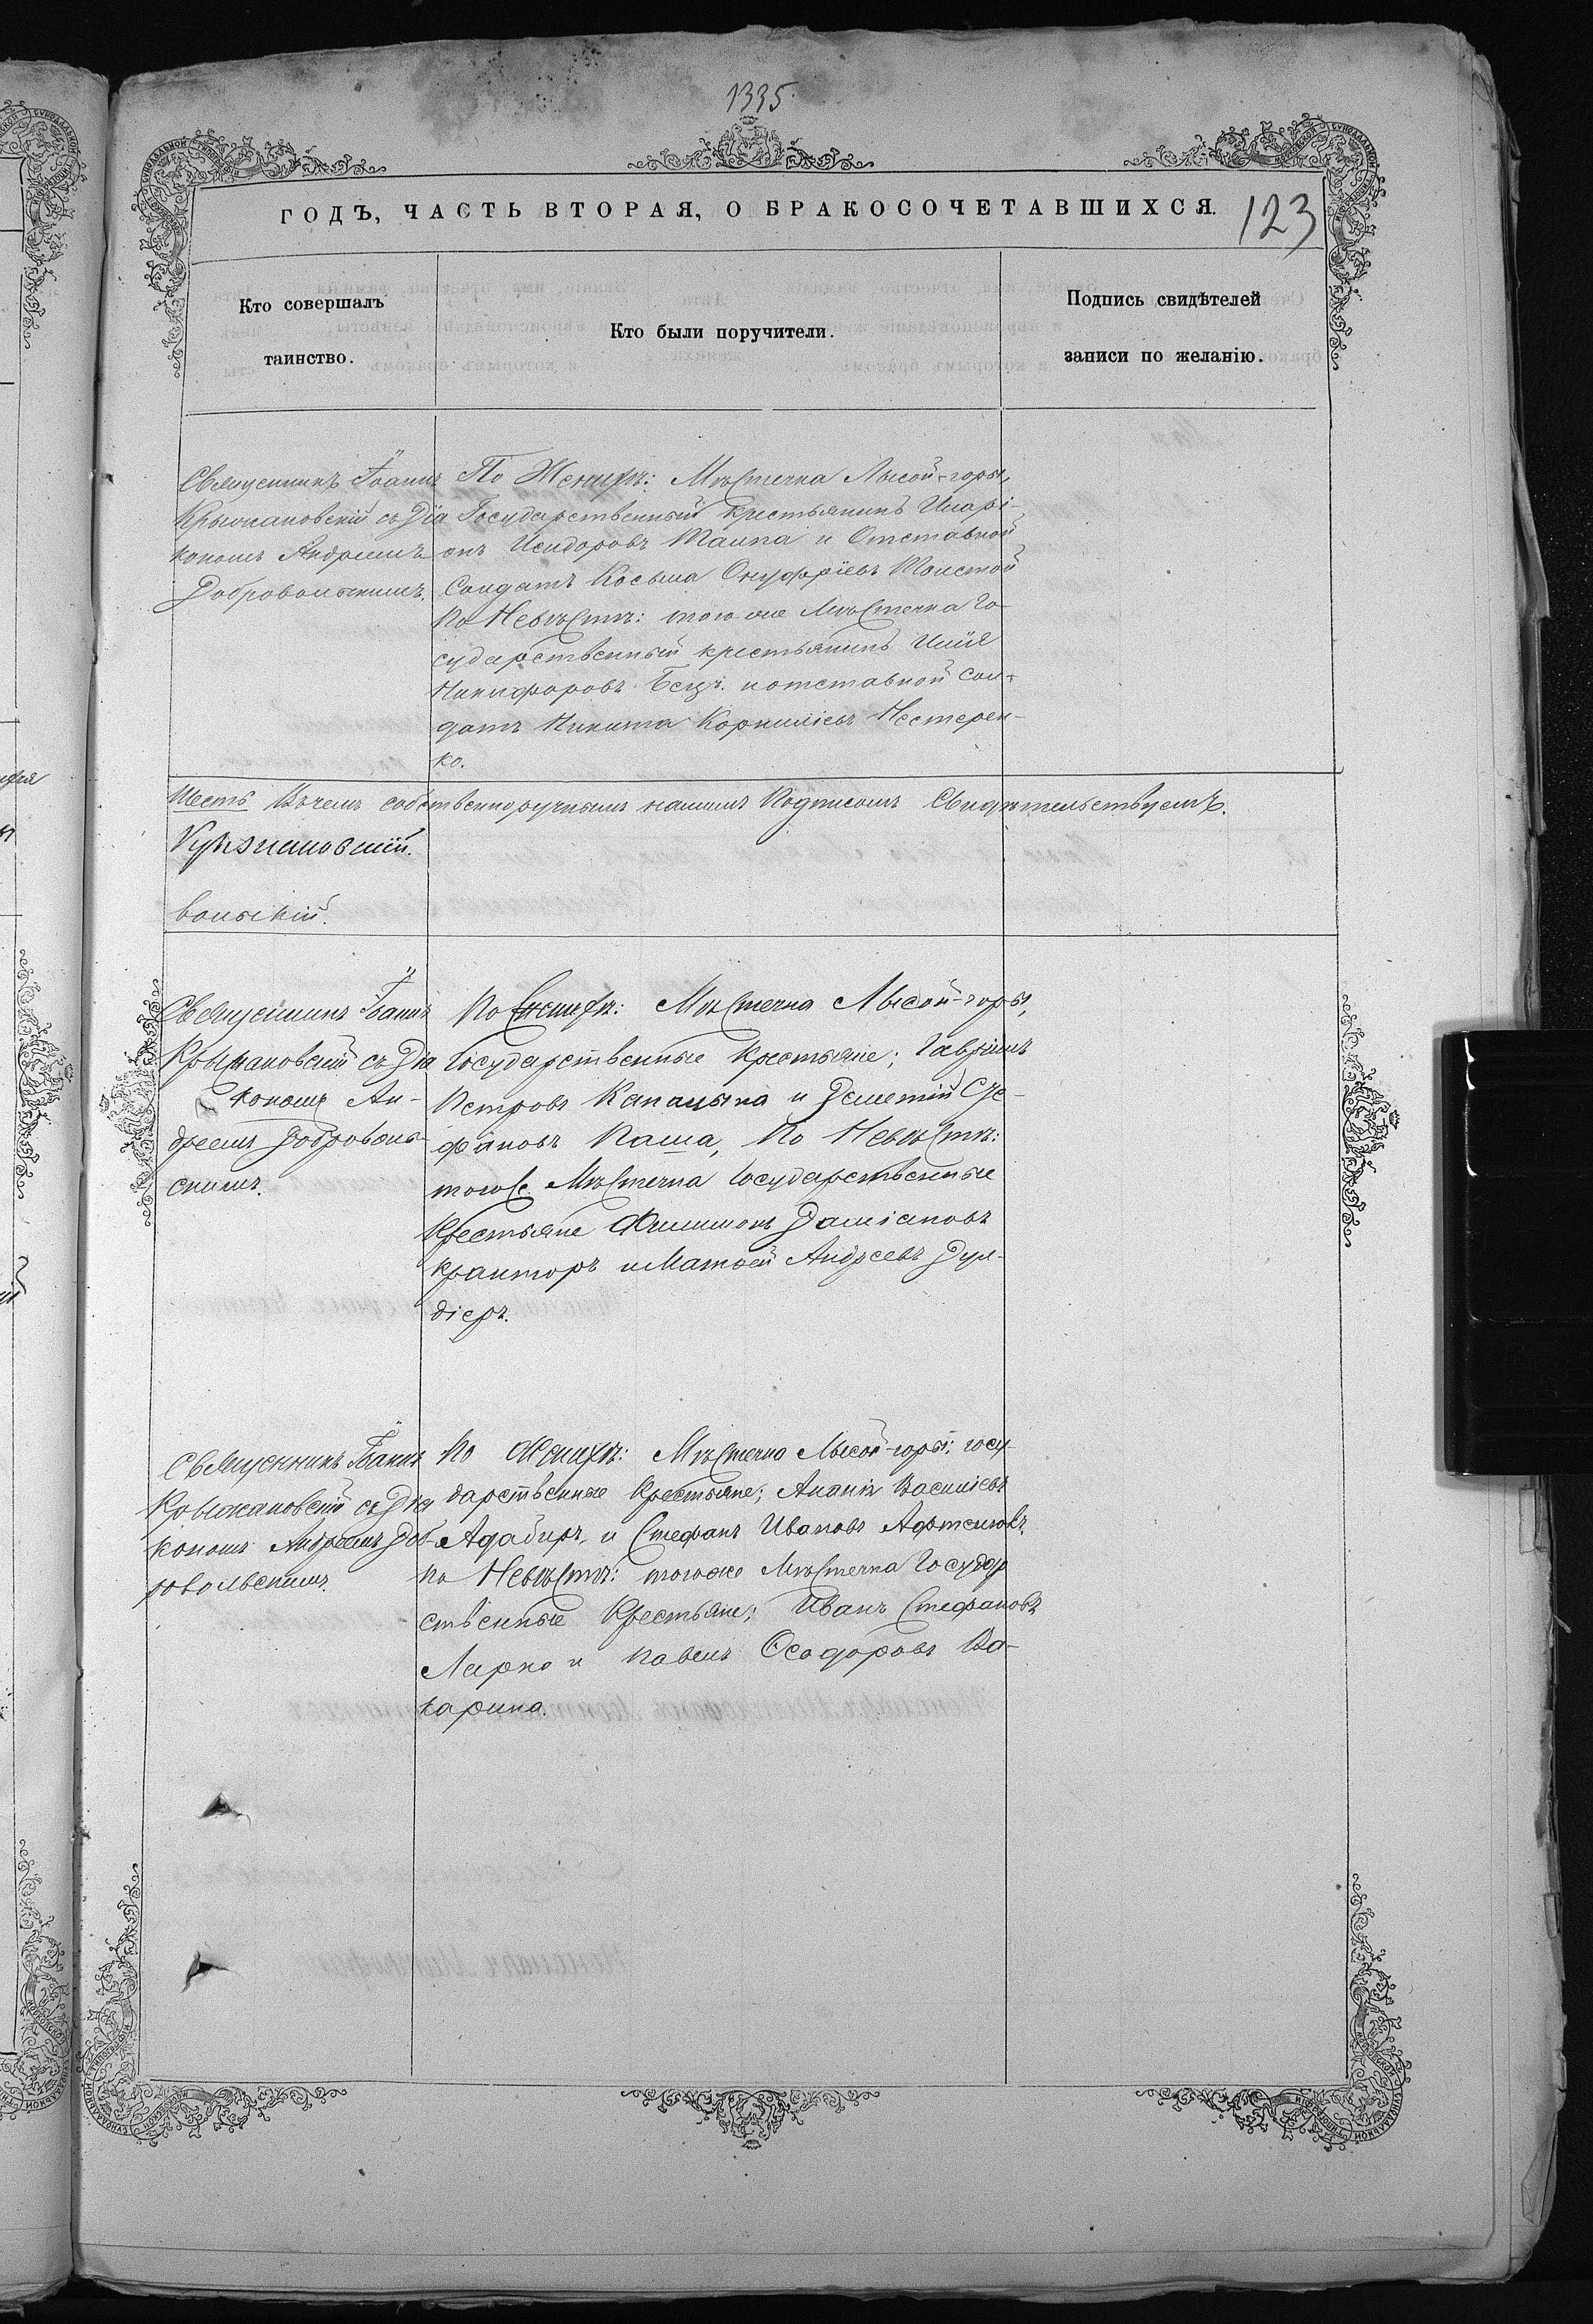 1335.
ГОДЪ, ЧАСТЬ ВТОРАЯ, О БРАКОСОЧЕТАВШИХСЯ.
123
Кто совершалъ
таинство.
Кто были поручители.
Подпись свидѣтелей
записи по желанію.
Священникъ Іоаннъ
Крыжановскій съ Діа
кономъ Андреемъ
Добровольскимъ.
По Женихѣ: Мѣстечка Лысой-горы,
Государственный крестьянинъ Иларі-
онъ Исидоровъ и Отставной
Солдатъ Косьма Онуфріевъ Толстой
По Невѣстѣ: того же Мѣстечка Го-
сударственный крестьянинъ Илія
Никифоровъ и отставной сол-
датъ Никита Корниліевъ Нестерен-
ко.
Шесть Въ чемъ собственноручнымъ нашимъ Подписомъ Свидѣтельствуемъ.
Крыжановскій.
вольскій.
Священникъ Іоаннъ
Крыжановскій съ Діа
кономъ Ан-
дреемъ Доброволь-
скимъ.
По Женихѣ: Мѣстечка Лысой-горы,
Государственные Крестьяне; Гавріилъ
Петровъ Капацына и Дометій Сте-
фановъ Паша, По Невѣстѣ:
тогоже Мѣстечка Государственные
Крестьяне Филимонъ Даміановъ
Кранторъ и Матѳей Андреевъ Дул-
діеръ.
Священникъ Іоаннъ
Крыжановскій съ Діа
кономъ Андреемъ Доб-
ровольскимъ.
По Женихѣ: Мѣстечка Лысой-горы; госу-
дарственные Крестьяне; Ананія Василіевъ
Адабиръ, и Стефанъ Ивановъ
По Невѣстѣ: тогоже Мѣстечка Государ
ственные Крестьяне; Иванъ Стефановъ
Лирко и Павелъ Ѳеодоровъ Ва-
карина.